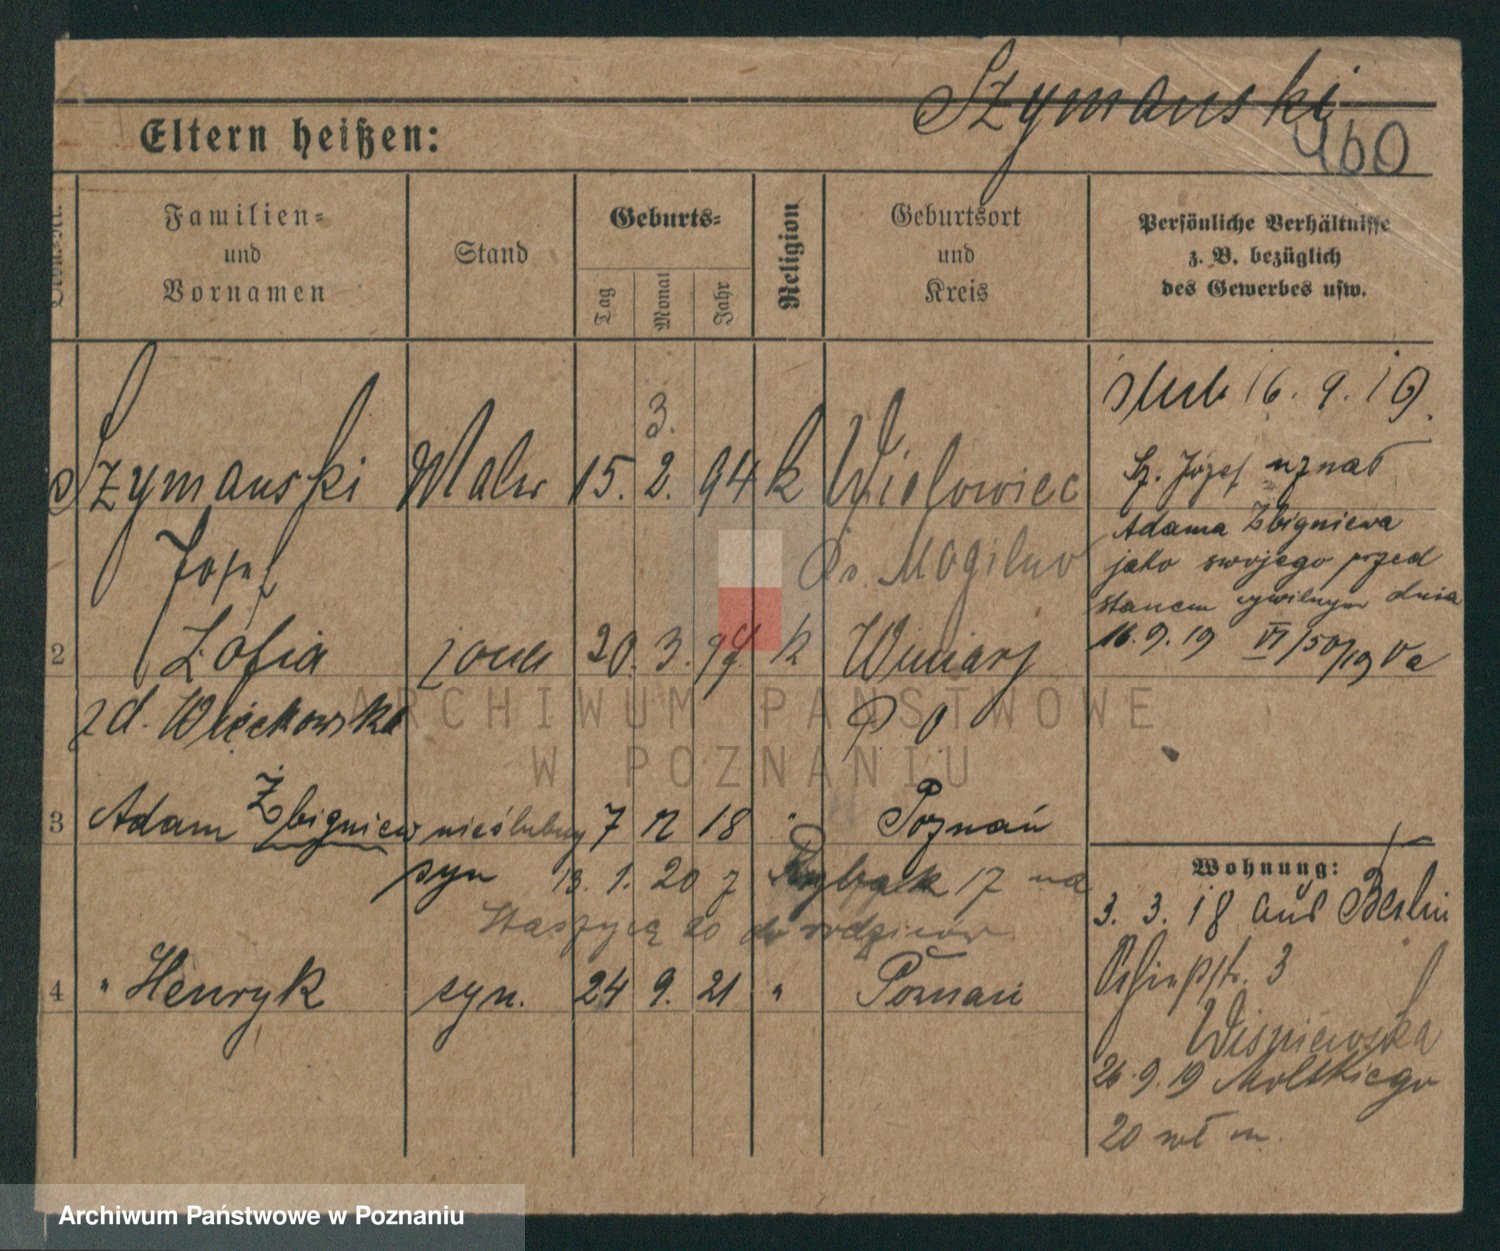 Szymanski
460
Eltern heißen:
Familien- und Vornamen
Stand
Geburts-
Tag
Monat
Jahr
Religion
Geburtsort und Kreis
Persönliche Verhältnisse
z. B. bezüglich
des Gewerbes usw.
16. 9. 19.
3.
Szymanski Maler 15. 2. 94 k Wielowiec
Sz. Józef uznał
Josef Mogilno
Adama Zbigniewa
jako swojego przed
stanem cywilnym dnia
16.9.19 VI/50/19 Va
2 Zofia żona 20. 3. k Winiary
zd. Więckowska P O
3 Adam Zbigniew nieślubny 7 12 18 " Poznań
syn 13. 1. 20 z Rybak 17 na
Staszyca 20 do rodziców
4 " Henryk syn. 24 9. 21 " Poznań
Wohnung:
3. 3. 18 aus Berlin
3
Wisniewska
26.9.19 Moltkiego
20 wł m.
ARCHIWUM PAŃSTWOWE
W POZNANIU
Archiwum Państwowe w Poznaniu